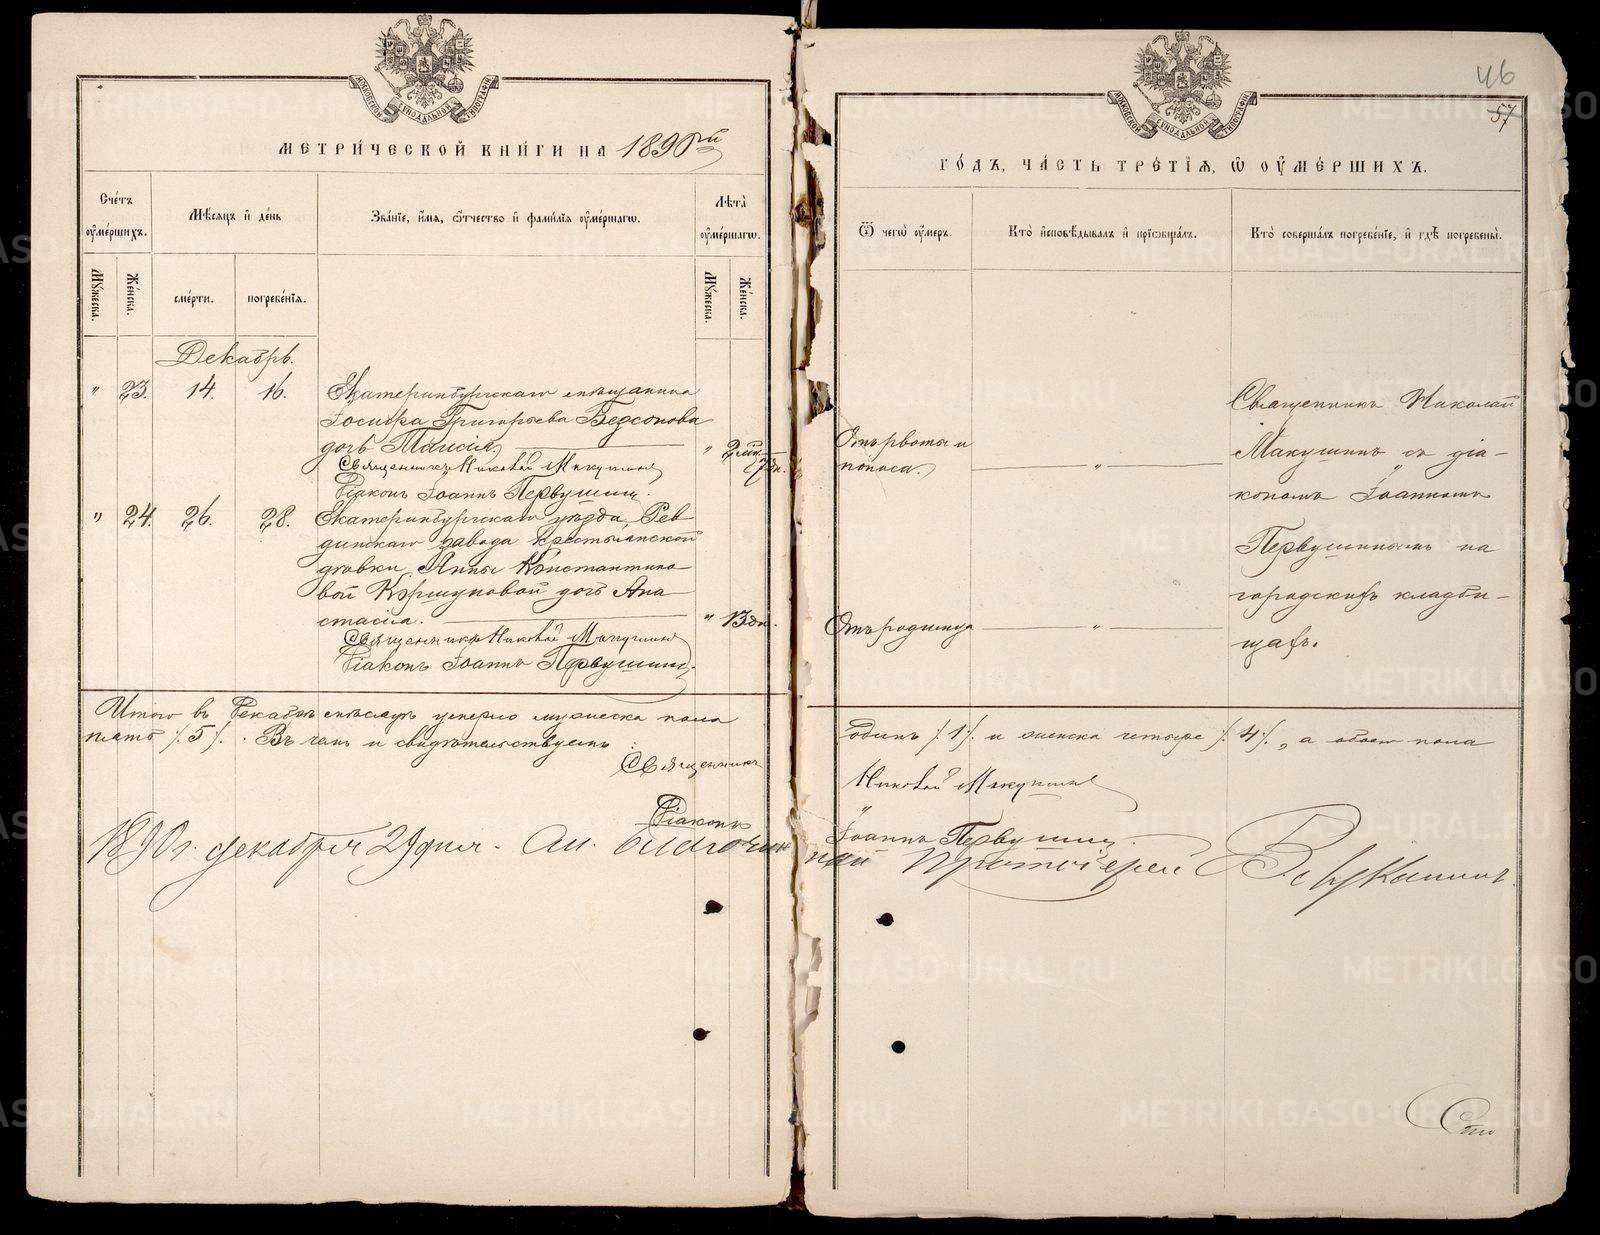 МОСКОВСКОЙ СѴНОДАЛЬНОЙ ТИПОГРАФІИ
МЕТРИ́ЧЕСКОЙ КНИ́ГИ НА 1890ый
Сче́тъ ᲂумершихъ.
Мѣсяцъ и де́нь
Зва́нїе, и́мя, ѻ́тчество и фами́лїя ᲂуме́ршагѡ.
Лѣта̀ ᲂуме́ршагѡ.
Мꙋжеска.
Же́нска.
сме́рти.
погребе́нїя.
Мꙋжеска.
Же́нска.
Декабрь.
" 23. 14. 16. Екатеринбургскаго мѣщанина
Іосифа Григорьева Ведсонова
дочь Таисія. " 2 мѣс. 7 дн.
Священникъ Николай Макушинъ
Діаконъ Іоаннъ Первушинъ.
" 24. 26. 28. Екатеринбургскаго уѣзда, Рев-
динскаго завода крестьянской
дѣвки Анны Константино-
вой Коршуновой дочь Ана-
стасія. " 13 дн.
Священникъ Николай Макушинъ
Діаконъ Іоаннъ Первушинъ.
Итого въ Декабрѣ мѣсяцѣ умерло мужеска пола
пять /.5/. Въ чемъ и свидѣтельствуемъ:
Священникъ
Діаконъ
1890 г. декабря 29 дня. Благочин
46
57
МОСКОВСКОЙ СѴНОДАЛЬНОЙ ТИПОГРАФІИ
ГО́ДЪ, ЧА́СТЬ ТРЕ́ТЇѦ, Ѡ ОУМЕ́РШИХЪ.
Ѿ чегѡ̀ ᲂу́меръ.
Кто̀ и҆сповѣ́дывалъ и҆ прїѡбща́лъ.
Кто̀ соверша́лъ погребе́нїе, и҆ гдѣ̀ погребены̀.
Отъ рвоты и
поноса.
"
Священникъ Николай
Макушинъ съ діа-
кономъ Іоанномъ
Первушинымъ на
городскихъ кладби-
щахъ.
Отъ родимца
"
одинъ /.1/. и женска четыре /.4/., а обоего пола
Николай Макушинъ
Іоаннъ Первушинъ.
ный Протоіерей
METRIKI.GASO-URAL.RU